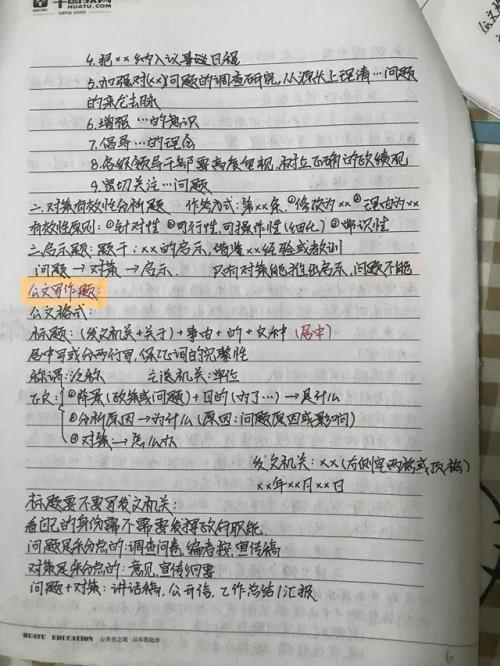 华图教育
HUATU.COM
4.把××纳入议事日程
5.加强对(××)问题的调查研究，从源头上理清…问题
的来龙去脉
6.增强…的意识
7.倡导…的理念
8.各级领导干部要高度重视，树立正确的政绩观
9.密切关注…问题
二.对策有效性分析题 作答方式：第××条，①修改为××②理由为××
有效性原则：①针对性 ②可行性，可操作性(细化) ③常识性
三.启示题：题干：××的启示，借鉴××经验或教训
问题→对策→启示. 只有对策能推出启示，问题不能
公文写作题：
公文格式：
标题：(发文机关+关于)+事由+的+文种(居中)
居中写或分两行写，保证词的完整性
称谓：泛称 主送机关：单位
正文：①背景(政策或问题)+目的(为了…)→是什么
②分析原因→为什么(原因：问题原因或影响)
③对策→怎么办
发文机关：××(右侧空两格或顶格)
××年××月××日
标题要不要写发文机关：
看自己的身份需不需要发挥政府职能
问题是采分点的：调查问卷，编者按，宣传稿
对策是采分点的：意见，宣传纲要
问题+对策：讲话稿，公开信，工作总结/汇报
HUATU EDUCATION 公务员之路 从华图起步